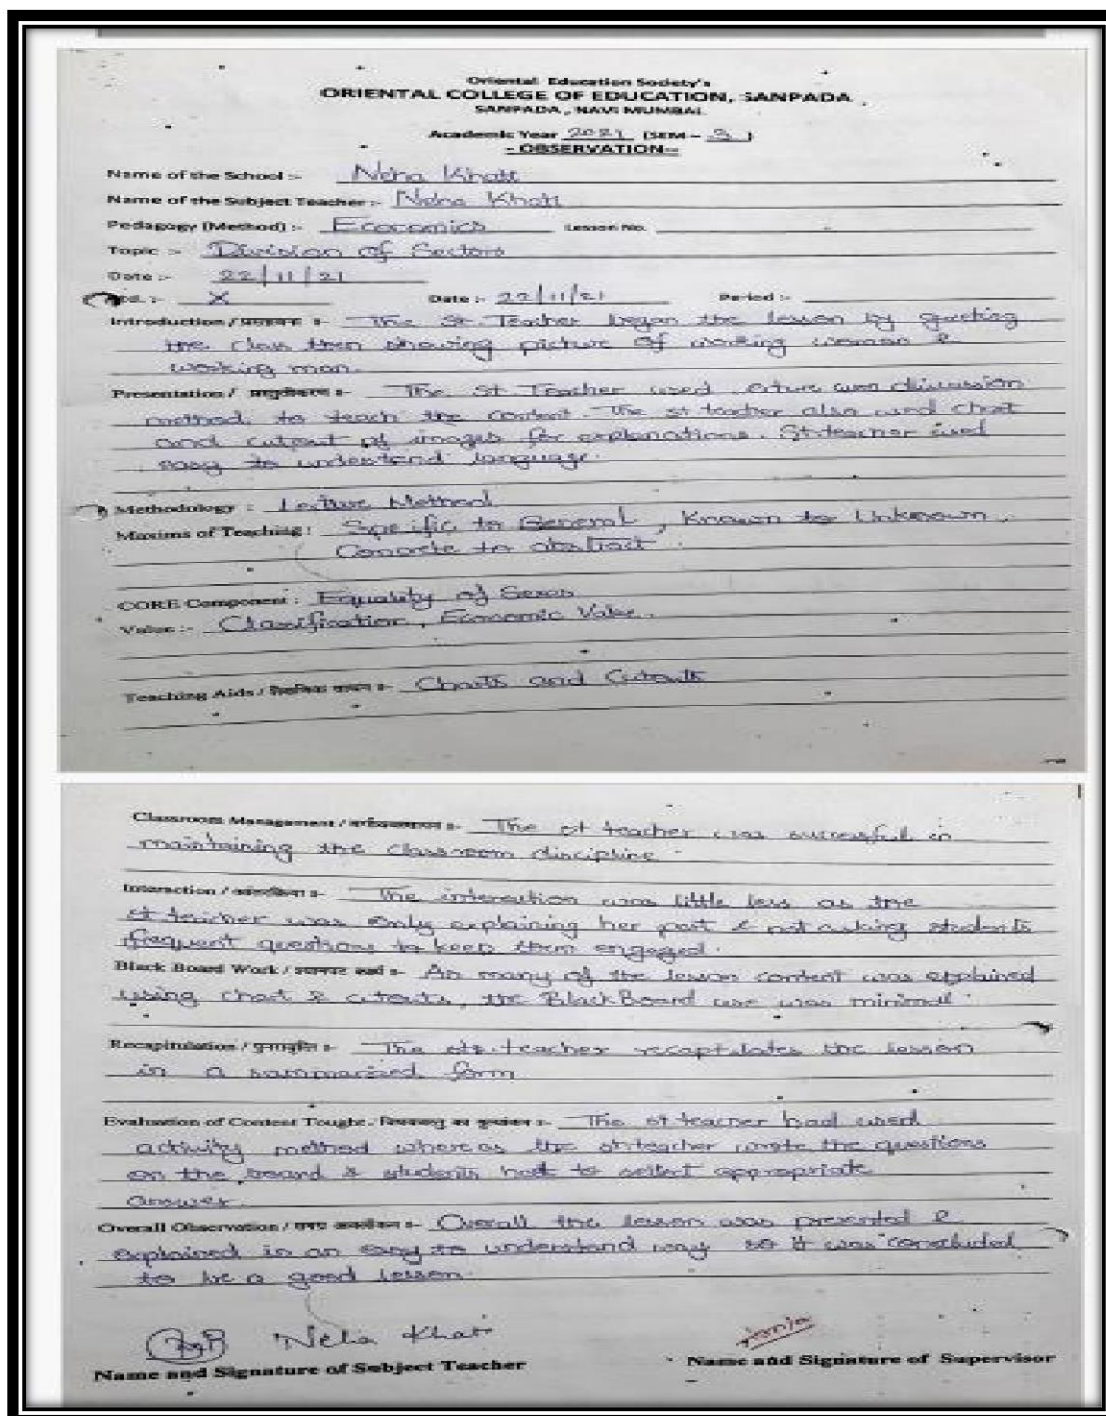 Oriental Education Society's
ORIENTAL COLLEGE OF EDUCATION, SANPADA
SANPADA, NAVI MUMBAI.
Academic Year 2021 (SEM – 3)
- OBSERVATION -
Name of the School :- Neha Khati
Name of the Subject Teacher :- Neha Khati
Pedagogy (Method) :- Economics Lesson No.
Topic :- Division of Sectors
Date :- 22/11/21
Std. :- X Date :- 22/11/21 Period :-
Introduction / :- The St. Teacher began the lesson by greeting
the class then showing picture of working woman &
working man.
Presentation / :- The St. Teacher used discussion
method to teach the content. The st teacher also used chart
and cutout of images for explanations. St. teacher used
easy to understand language.
Methodology : Lecture Method
Maxims of Teaching : Specific to General, Known to Unknown,
Concrete to abstract.
CORE Component : Equality of Sexes
Value :- Classification, Economic Value.
Teaching Aids / :- Charts and Cutouts
Classroom Management / :- The st teacher was successful in
maintaining the classroom discipline.
Interaction / :- The interaction was little less as the
st teacher was only explaining her part & not asking students
frequent questions to keep them engaged.
Black Board Work / :- As many of the lesson content was explained
using chart & cutouts, the BlackBoard use was minimal.
Recapitulation / :- The sts. teacher recaptulates the lesson
in a summarized form
Evaluation of Content Tought / :- The st teacher had used
activity method whereas the st teacher wrote the questions
on the board & students had to select appropriate
answer.
Overall Observation / :- Overall the lesson was presented &
explained in an easy to understand way so it was concluded
to be a good lesson.
Neha Khati
Name and Signature of Subject Teacher Name and Signature of Supervisor